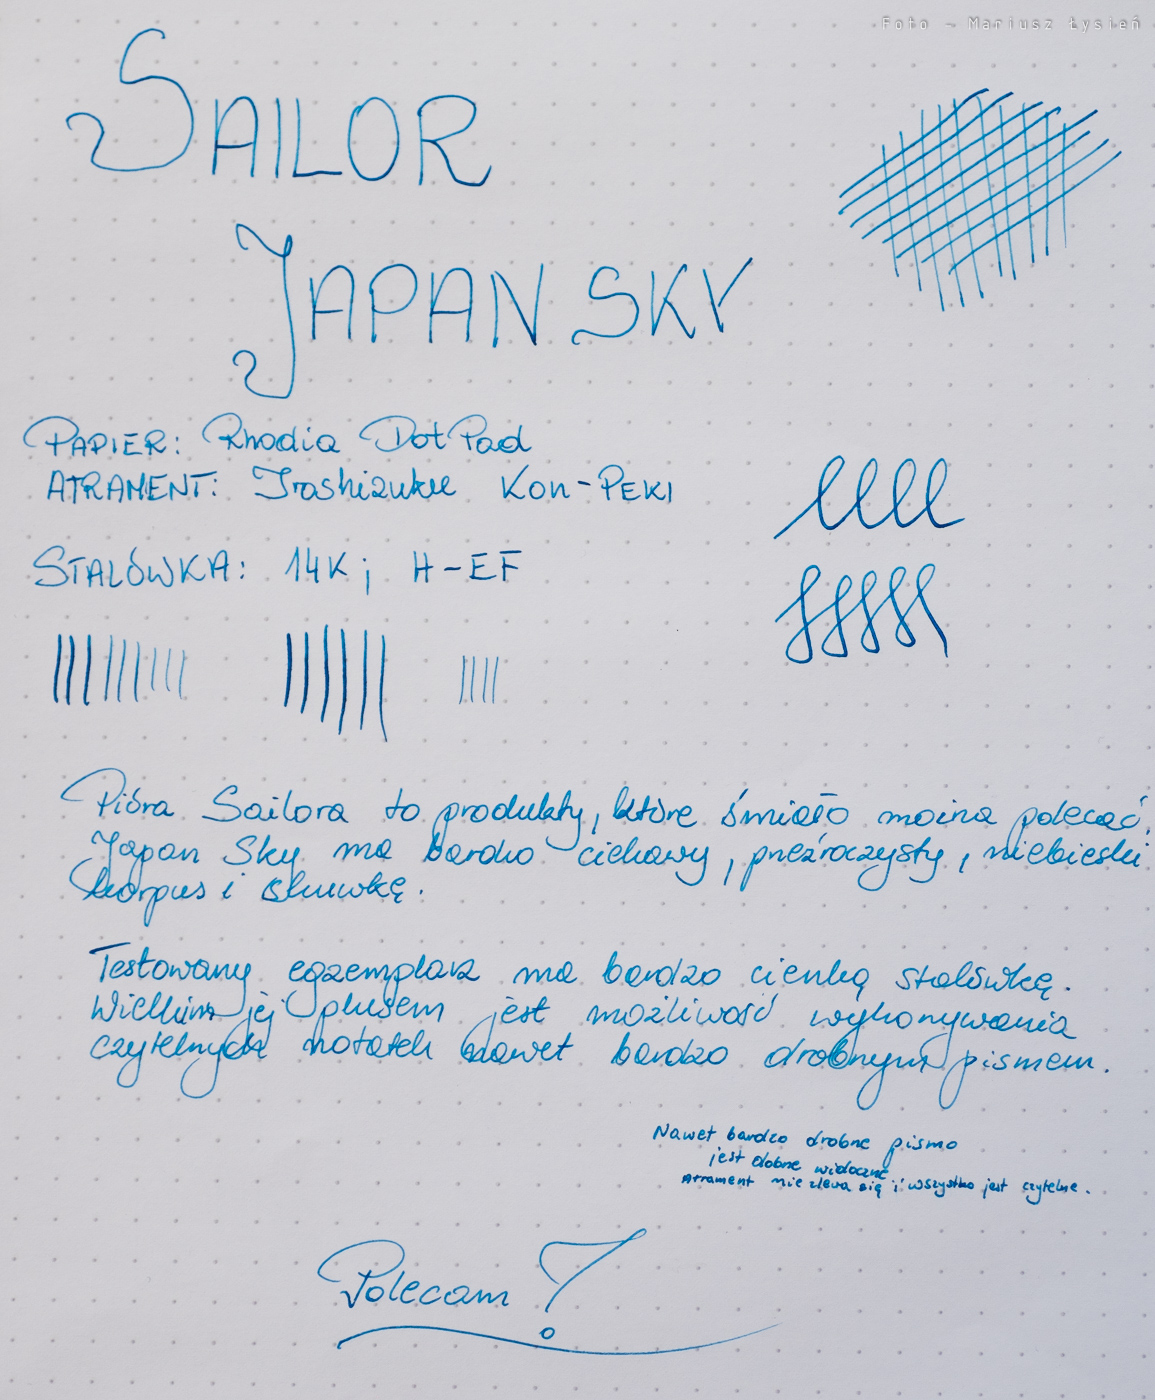 Foto - Mariusz Łysień
SAILOR
JAPAN SKY
PAPIER: Rhodia Dot Pad
ATRAMENT: Iroshizuku Kon-PEKI
STALÓWKA: 14K; H-EF
Pióra Sailora to produkty, które śmiało można polecać.
Japan Sky ma bardzo ciekawy, przeźroczysty, niebieski
korpus i skuwkę.
Testowany egzemplarz ma bardzo cienką stalówkę.
Wielkim jej plusem jest możliwość wykonywania
czytelnych notatek nawet bardzo drobnym pismem.
Nawet bardzo drobne pismo
jest dobrze widoczne
Atrament nie zlewa się i wszystko jest czytelne.
Polecam!